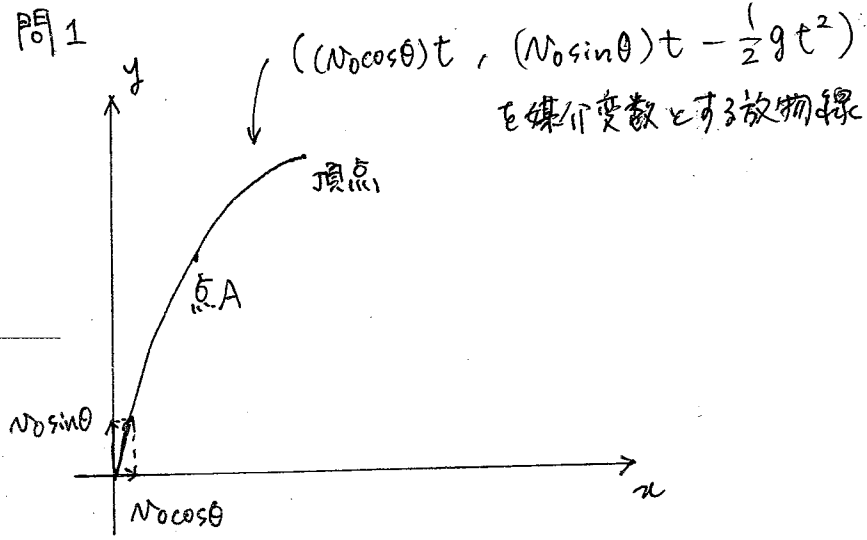 問1
((v₀cosθ)t , (v₀sinθ)t - 1/2 gt²)
を媒介変数とする放物線
y
頂点
点A
v₀sinθ
x
v₀cosθ